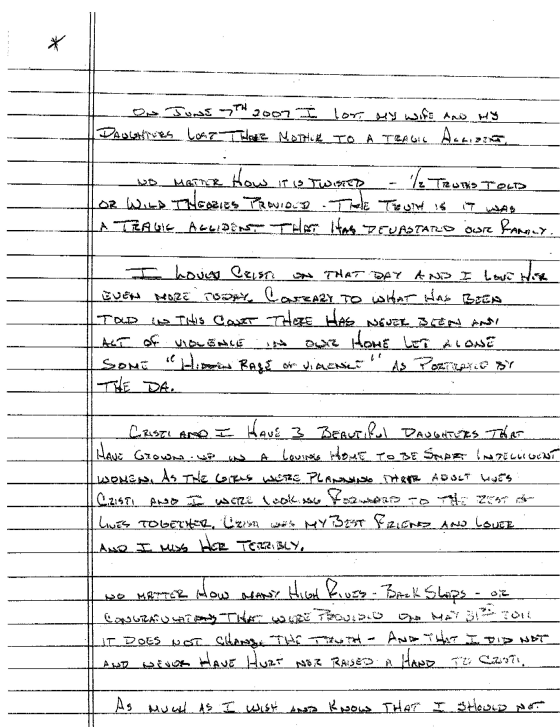 *
ON JUNE 7TH 2007 I LOST MY WIFE AND MY
DAUGHTERS LOST THERE MOTHER TO A TRAGIC ACCIDENT.
NO MATTER HOW IT IS TWISTED - 1/2 TRUTHS TOLD
OR WILD THEORIES PROVIDED - THE TRUTH IS IT WAS
A TRAGIC ACCIDENT THAT HAS DEVASTATED OUR FAMILY.
I LOVED CRISTI ON THAT DAY AND I LOVE HER
EVEN MORE TODAY. CONTRARY TO WHAT HAS BEEN
TOLD IN THIS COURT THERE HAS NEVER BEEN ANY
ACT OF VIOLENCE IN OUR HOME LET ALONE
SOME "HIDDEN RAGE OF VIOLENCE" AS PORTRAYED BY
THE DA.
CRISTI AND I HAVE 3 BEAUTIFUL DAUGHTERS THAT
HAVE GROWN-UP IN A LOVING HOME TO BE SMART INTELLIGENT
WOMEN. AS THE GIRLS WERE PLANNING THERE ADULT LIVES
CRISTI AND I WERE LOOKING FORWARD TO THE REST OF
LIVES TOGETHER. CRISTI WAS MY BEST FRIEND AND LOVER
AND I MISS HER TERRIBLY.
NO MATTER HOW MANY HIGH FIVES - BACK SLAPS - OR
CONGRATULATIONS THAT WERE PROVIDED ON MAY 31ST 2011
IT DOES NOT CHANGE THE TRUTH - AND THAT I DID NOT
AND NEVER HAVE HURT NOR RAISED A HAND TO CRISTI.
AS MUCH AS I WISH AND KNOW THAT I SHOULD NOT